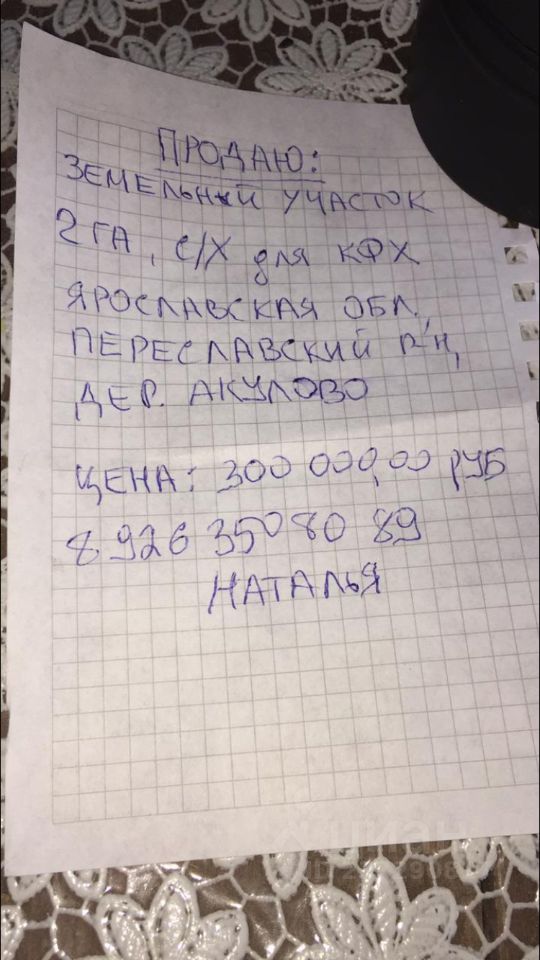 ПРОДАЮ:
ЗЕМЕЛЬНЫЙ УЧАСТОК
2 ГА, С/Х для КФХ
ЯРОСЛАВСКАЯ ОБЛ,
ПЕРЕСЛАВСКИЙ Р-Н,
ДЕР. АКУЛОВО
ЦЕНА: 300 000,00 РУБ
8 926 350 80 89
НАТАЛЬЯ
циан